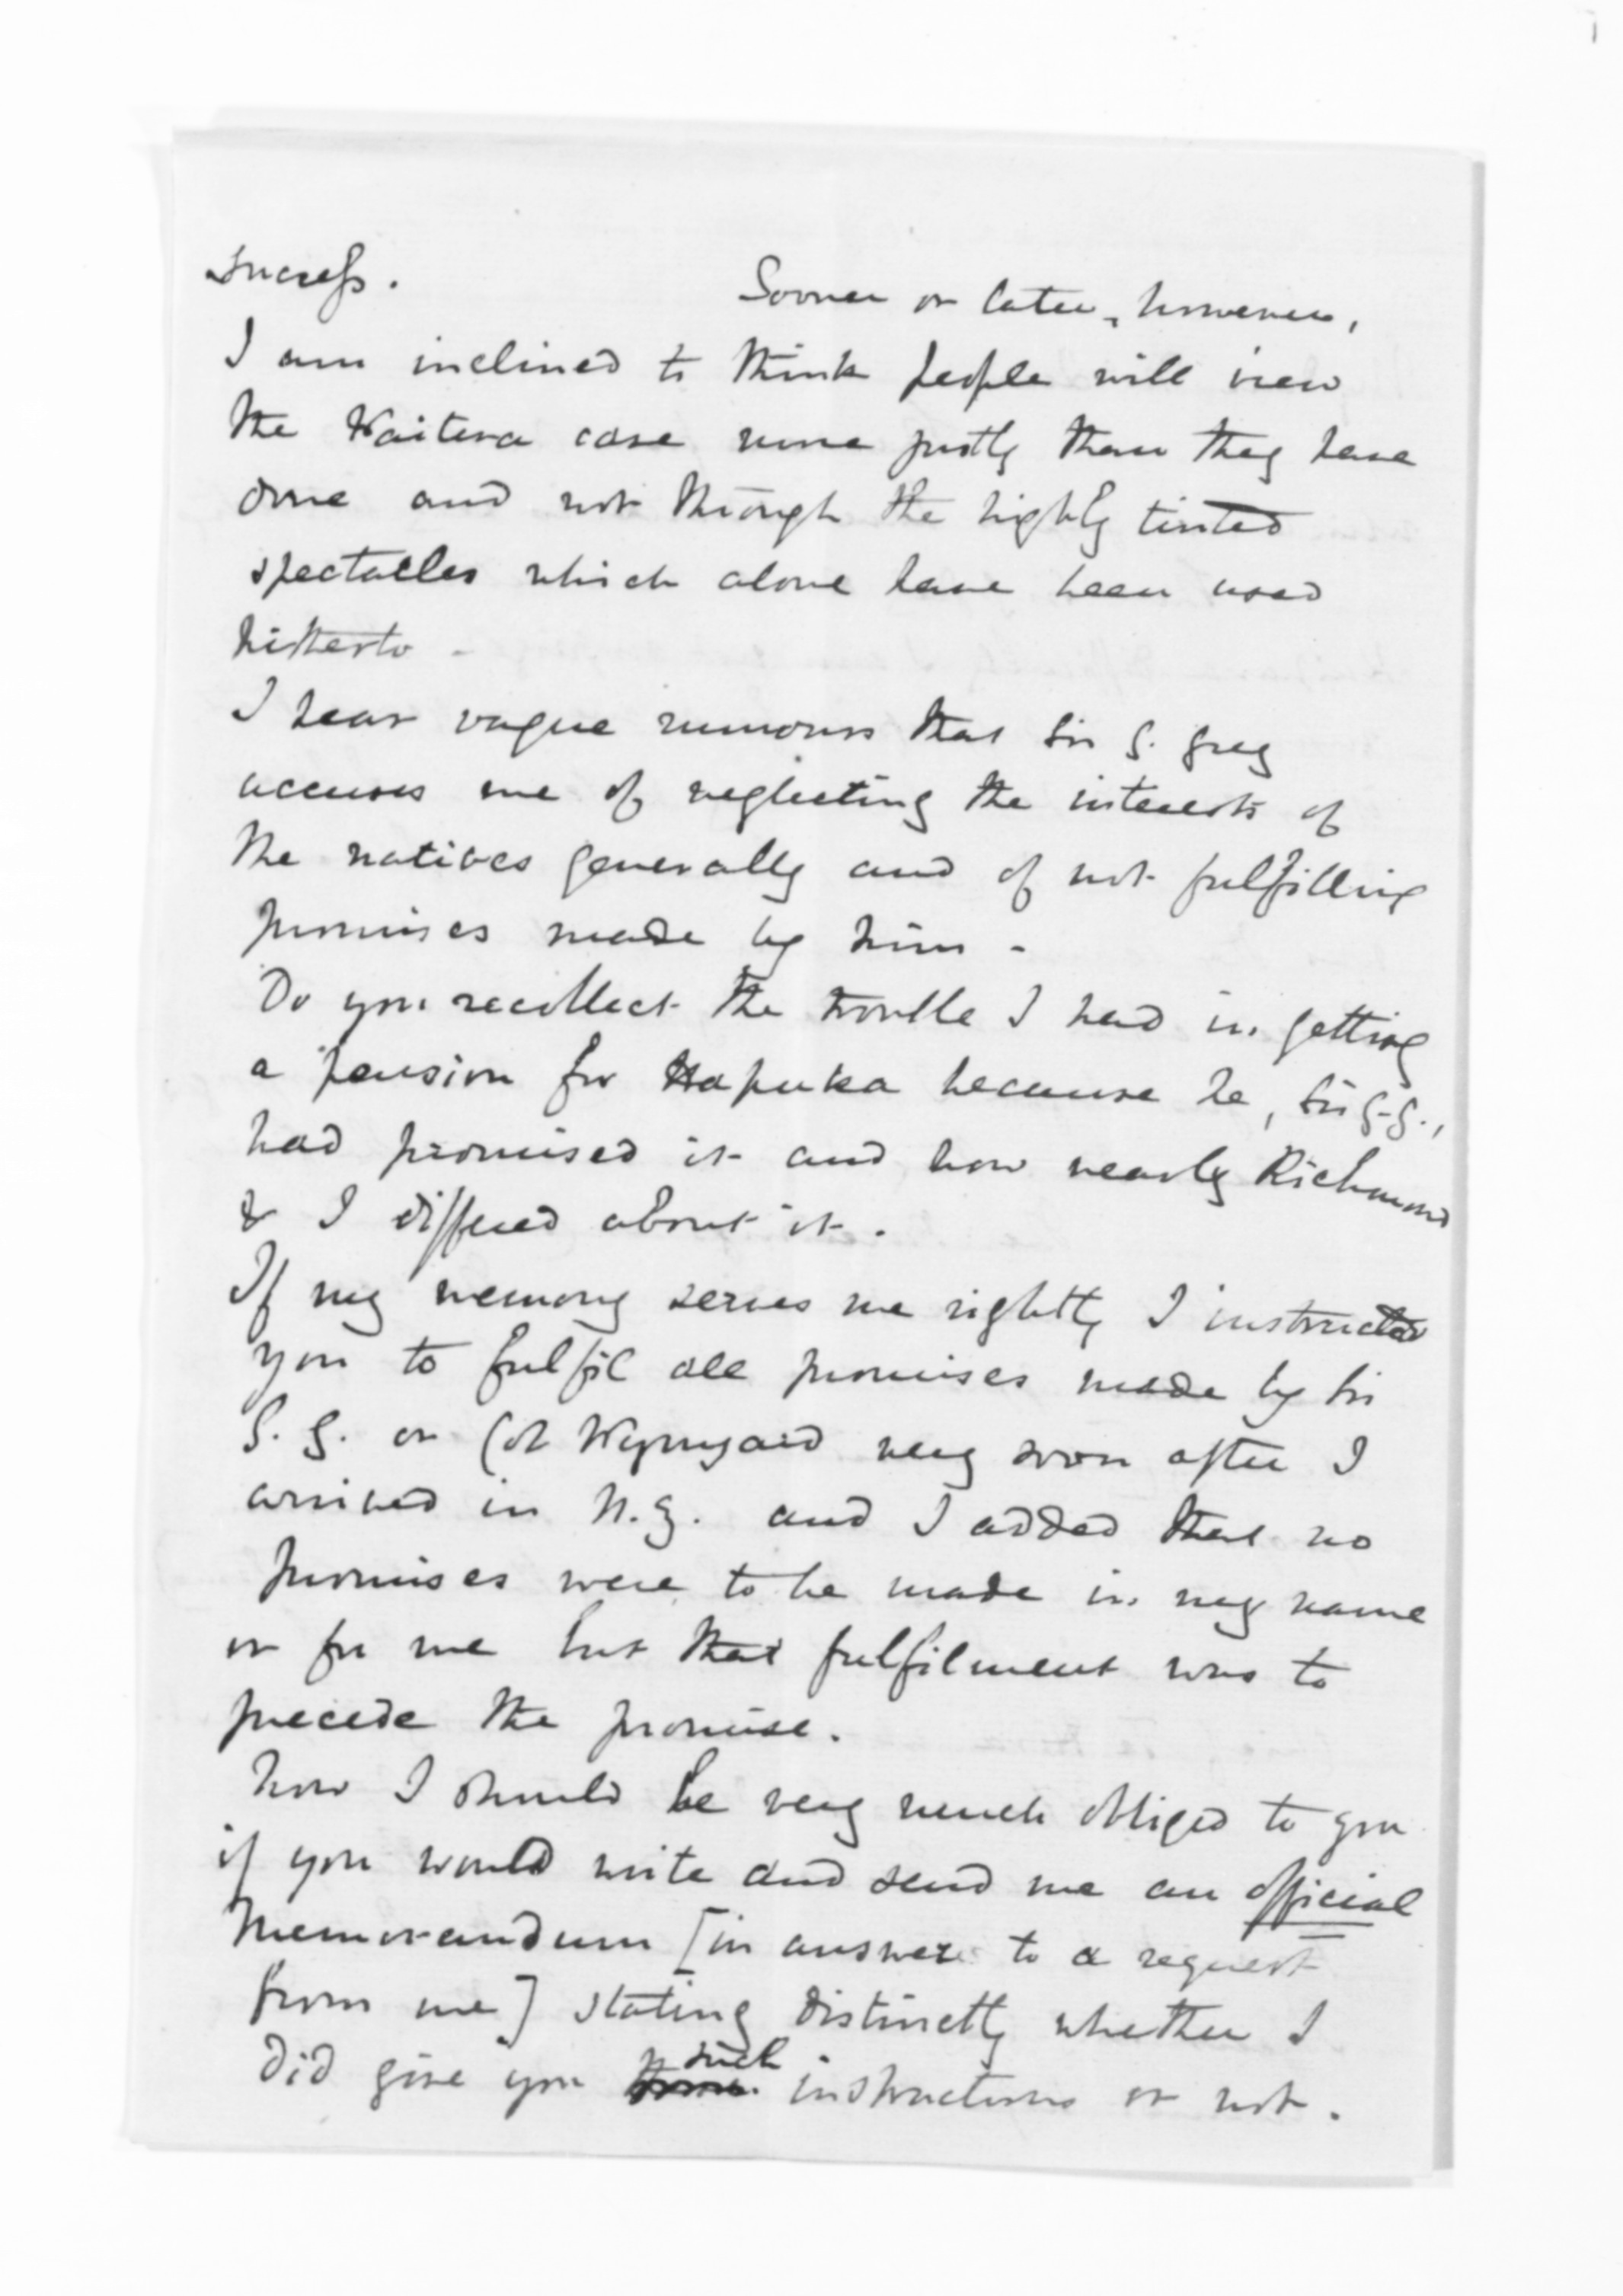 success. Sooner or later, however,
I am inclined to think people will view
the Waitera case more justly than they have
done and not through the highly tinted
spectacles which alone have been used
hitherto -
I hear vague rumours that Sir G. Grey
accuses me of neglecting the interests of
the natives generally and of not fulfilling
promises made by him -
Do you recollect the trouble I had in getting
a pension for Hapuka because he, Sir G.G.,
had promised it and how nearly Richmond
& I differed about it.
If my memory serves me rightly I instructed
you to fulfil all promises made by Sir
G. G. or Col Wynyard very soon after I
arrived in N.Z. and I added that no
promises were to be made in my name
or for me but that fulfilment was to
precede the promise.
Now I should be very much obliged to you
if you would write and send me an official
Memorandum [in answer to a request
from me] stating distinctly whether I
did give you such instructions or not.